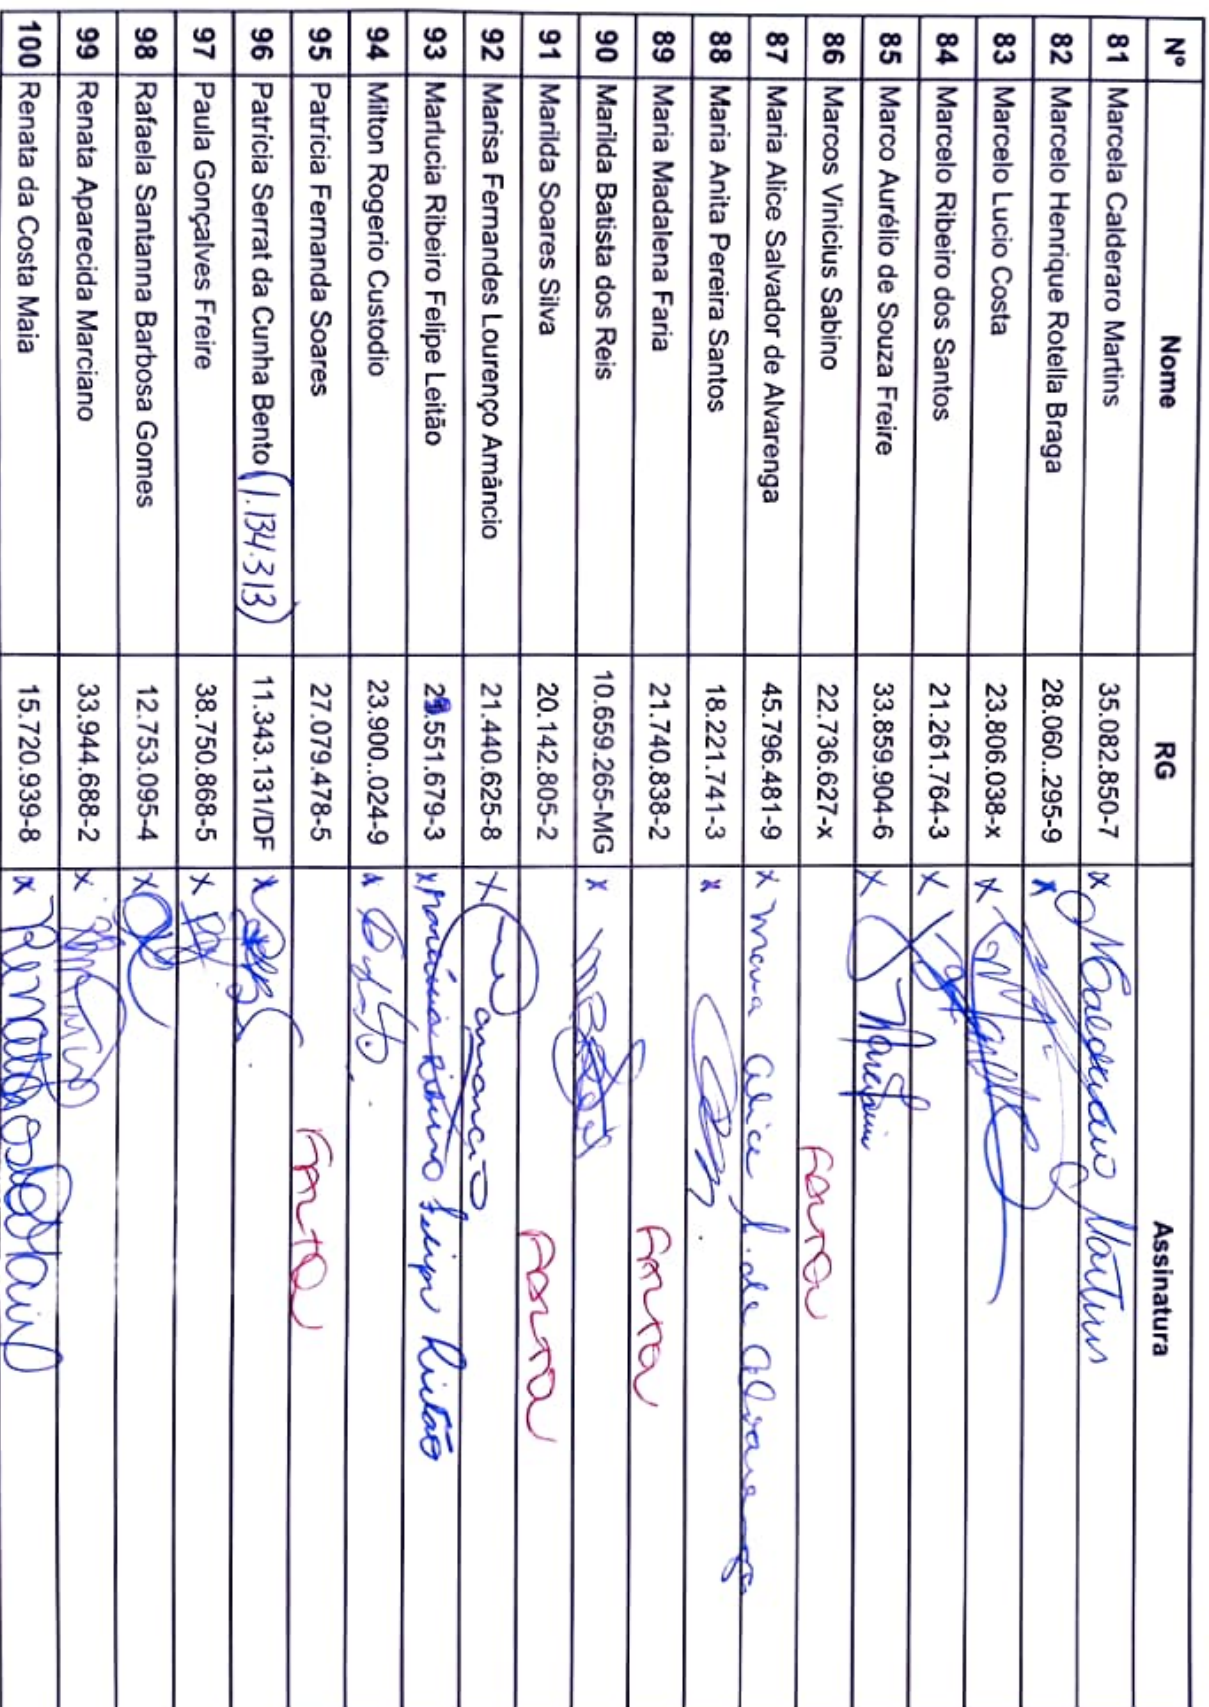 Nº Nome RG Assinatura
81 Marcela Calderaro Martins 35.082.850-7 x MCalderaro Martins
82 Marcelo Henrique Rotella Braga 28.060..295-9 x
83 Marcelo Lucio Costa 23.806.038-x x
84 Marcelo Ribeiro dos Santos 21.261.764-3 x
85 Marco Aurélio de Souza Freire 33.859.904-6 x
86 Marcos Vinicius Sabino 22.736.627-x FALTOU
87 Maria Alice Salvador de Alvarenga 45.796.481-9 x Maria Alice S. de Alvarenga
88 Maria Anita Pereira Santos 18.221.741-3 x
89 Maria Madalena Faria 21.740.838-2 FALTOU
90 Marilda Batista dos Reis 10.659.265-MG x
91 Marilda Soares Silva 20.142.805-2 FALTOU
92 Marisa Fernandes Lourenço Amâncio 21.440.625-8 x amancio
93 Marlucia Ribeiro Felipe Leitão .551.679-3 x Marlucia Ribeiro Felipe Leitão
94 Milton Rogerio Custodio 23.900..024-9 x
95 Patricia Fernanda Soares 27.079.478-5 FALTOU
96 Patricia Serrat da Cunha Bento (1.134.313) 11.343.131/DF x
97 Paula Gonçalves Freire 38.750.868-5 x
98 Rafaela Santanna Barbosa Gomes 12.753.095-4 x
99 Renata Aparecida Marciano 33.944.688-2 x
100 Renata da Costa Maia 15.720.939-8 x Renata Costa Maia